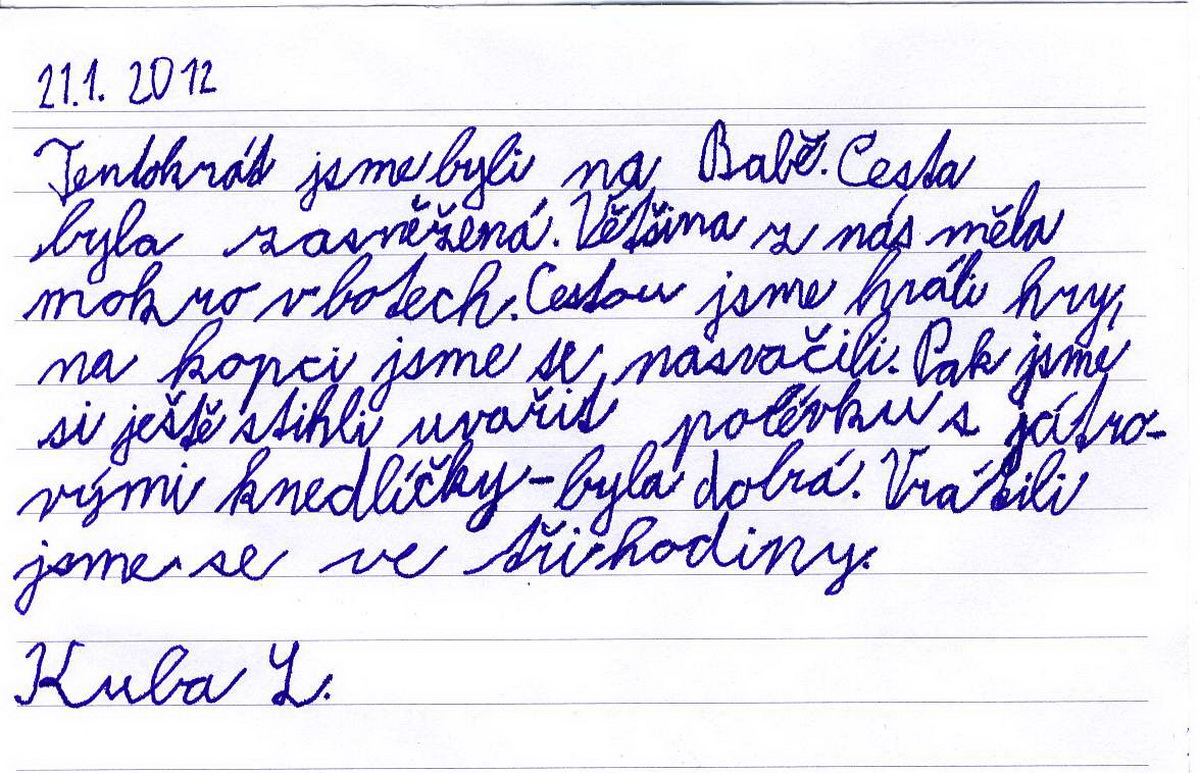 21.1. 2012
Tentokrát jsme byli na Babě. Cesta
byla zasněžená. Většina z nás měla
mokro v botech. Cestou jsme hráli hry,
na kopci jsme se nasvačili. Pak jsme
si ještě stihli uvařit polévku s játro-
vými knedlíčky - byla dobrá. Vrátili
jsme se ve tři hodiny.
Kuba L.